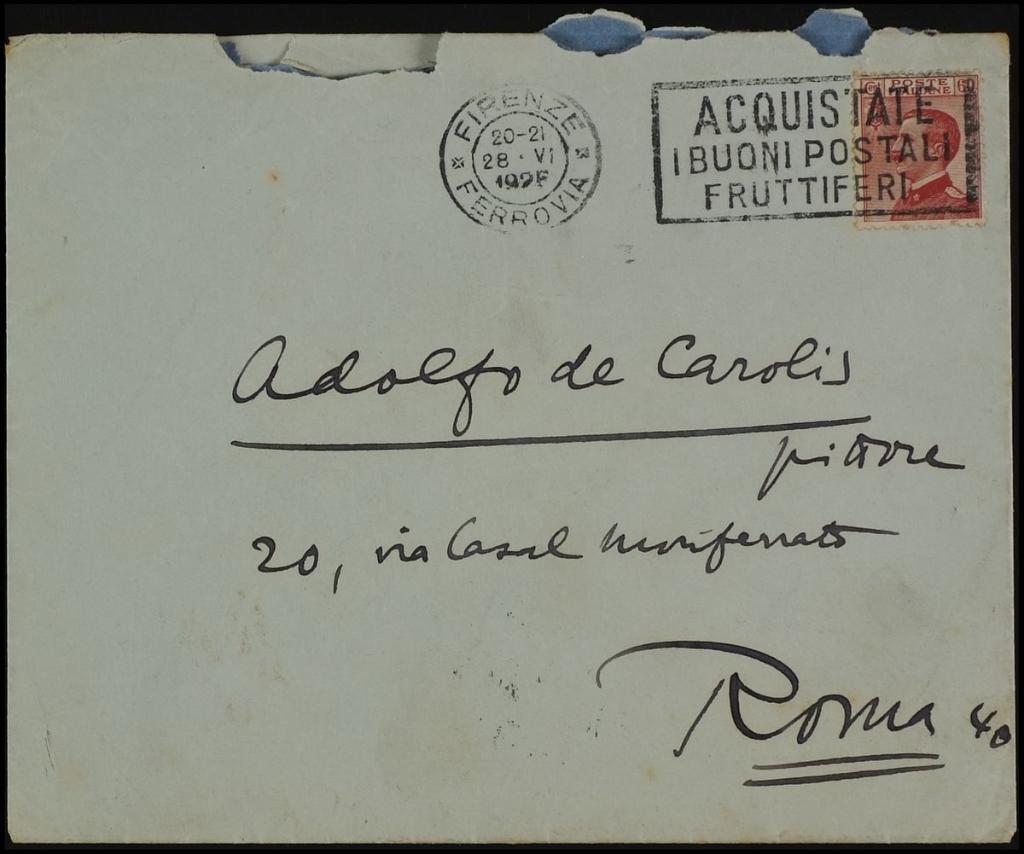 FIRENZE
20-21
28 · VI
FERROVIA
ACQUISTATE
I BUONI POSTALI
FRUTTIFERI
POSTE
ITALIANE
60
Adolfo de Carolis
pittore
20, via Casal Monferrato
Roma 40